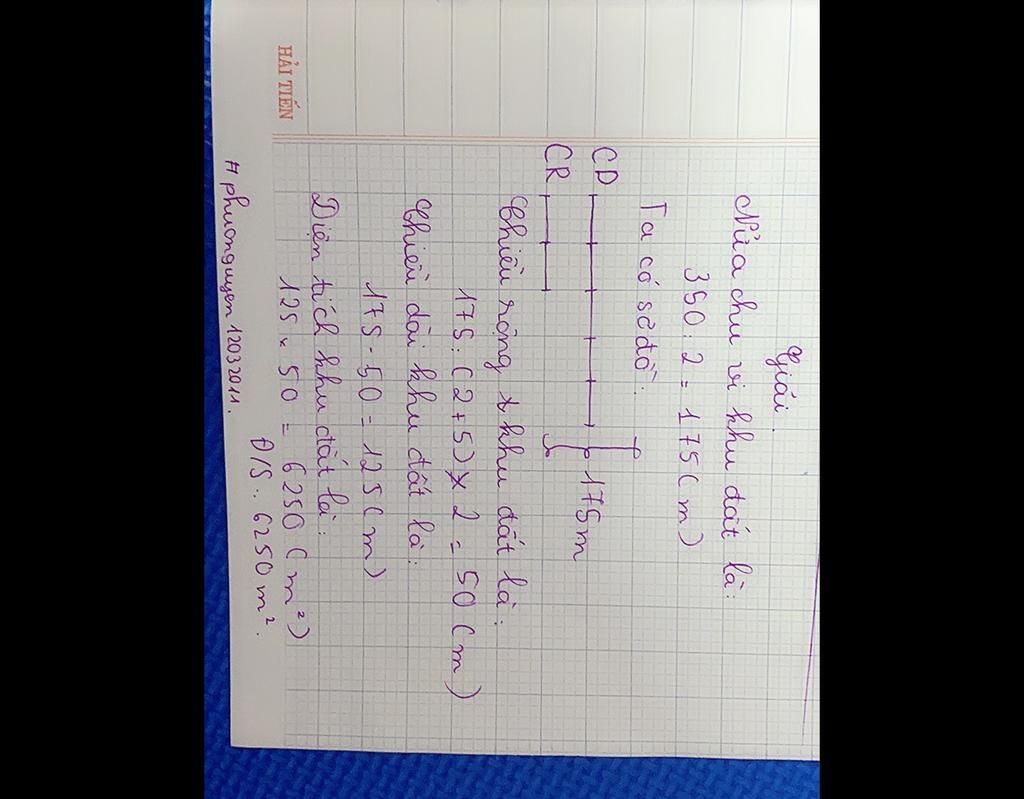 Giải.
Nửa chu vi khu đất là:
350 : 2 = 175 (m)
Ta có sơ đồ:
CD
175m
CR
Chiều rộng khu đất là:
175 : (2+5) x 2 = 50 (m)
Chiều dài khu đất là:
175 - 50 = 125 (m)
Diện tích khu đất là:
125 x 50 = 6250 (m²)
Đ/S: 6250 m².
# phuonguyen12032011.
HẢI TIẾN